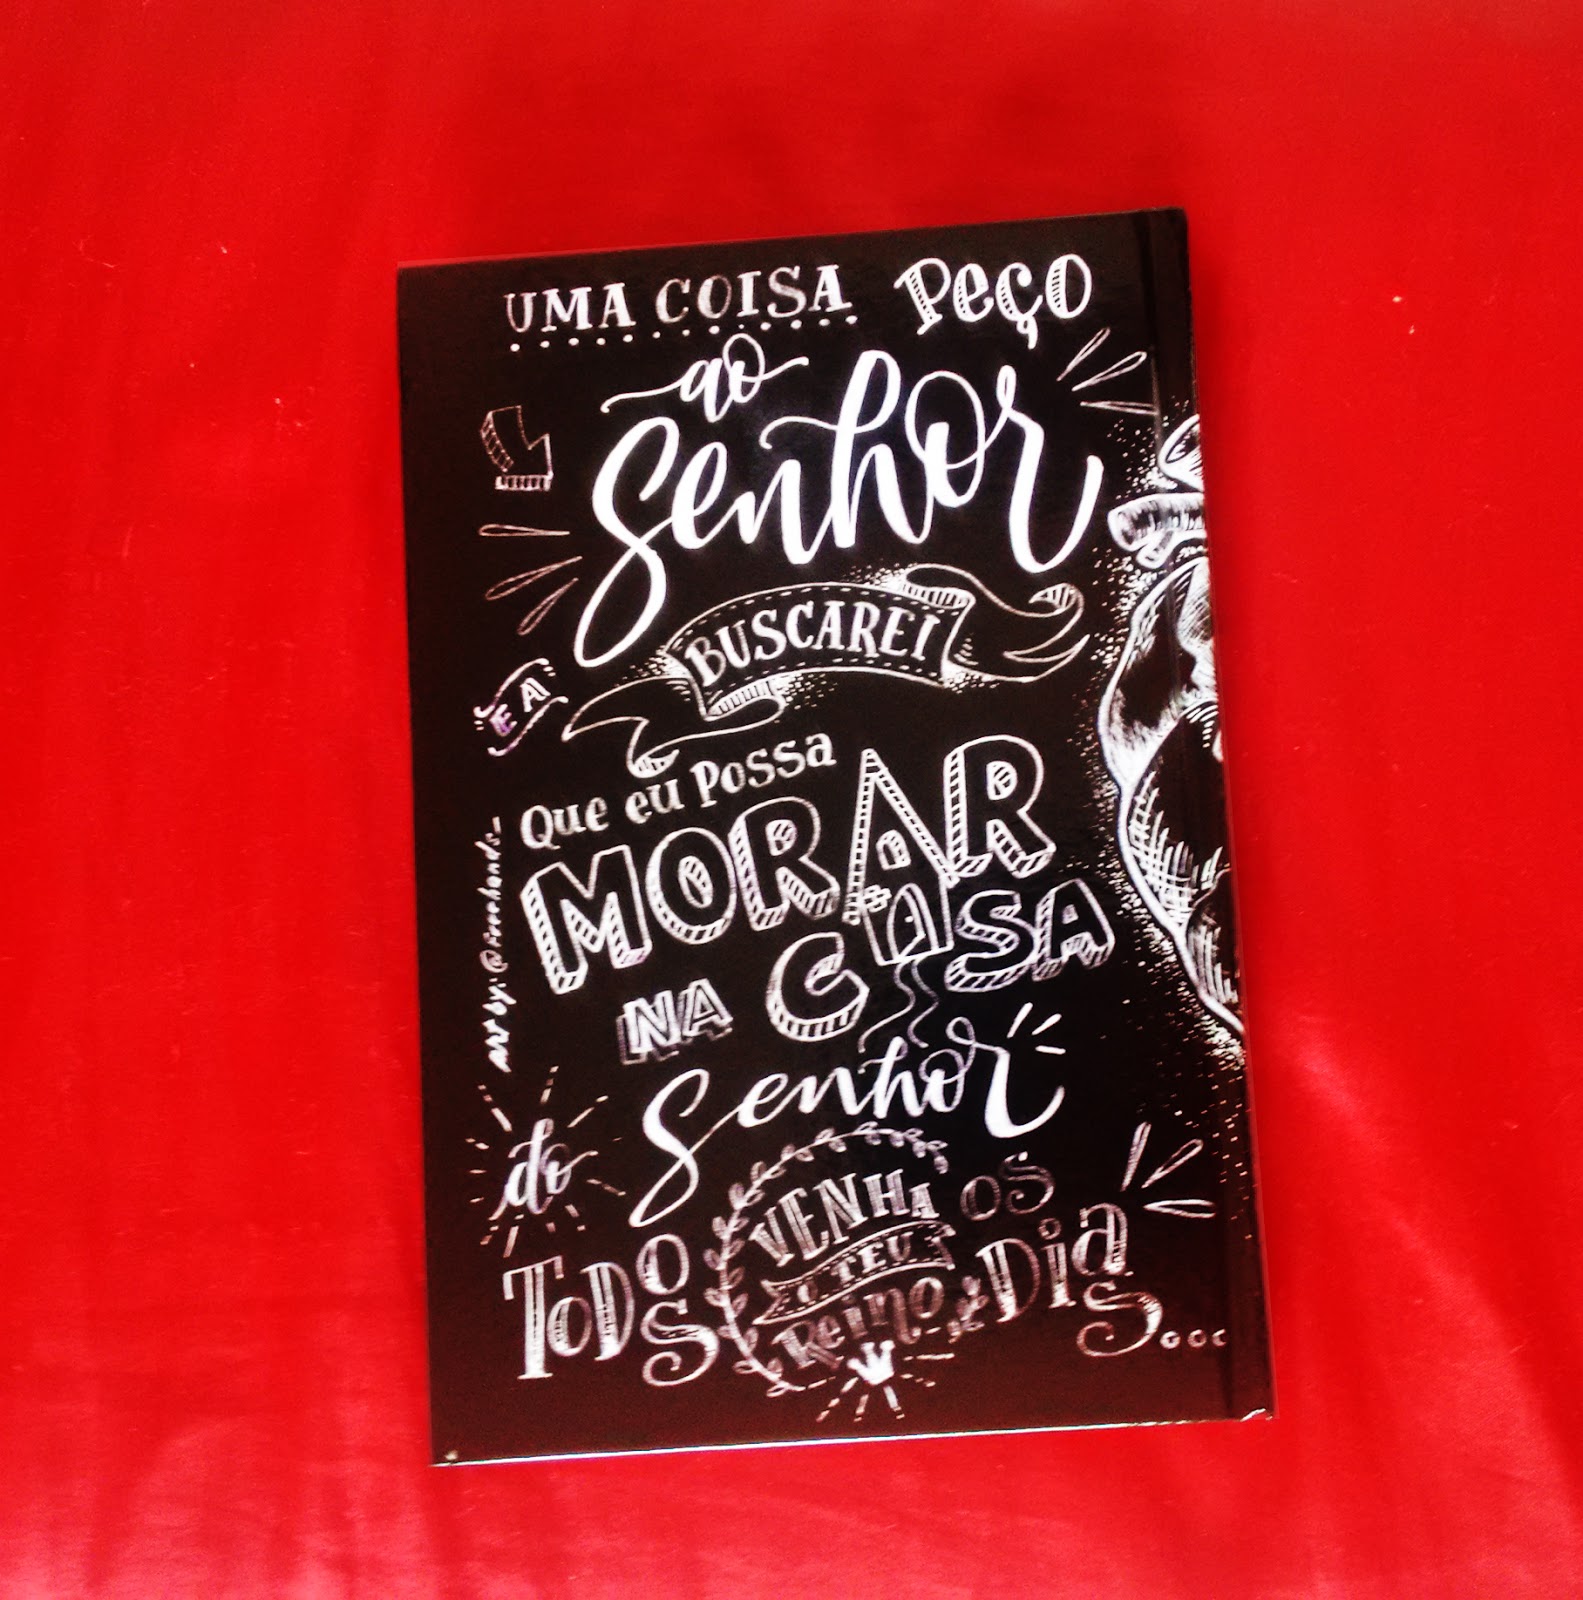 UMA COISA PEÇO
ao
Senhor
E A BUSCAREI
Que eu possa
MORAR
NA CASA
do Senhor
TODOS OS DIAS...
VENHA
O TEU
Reino
Art by: